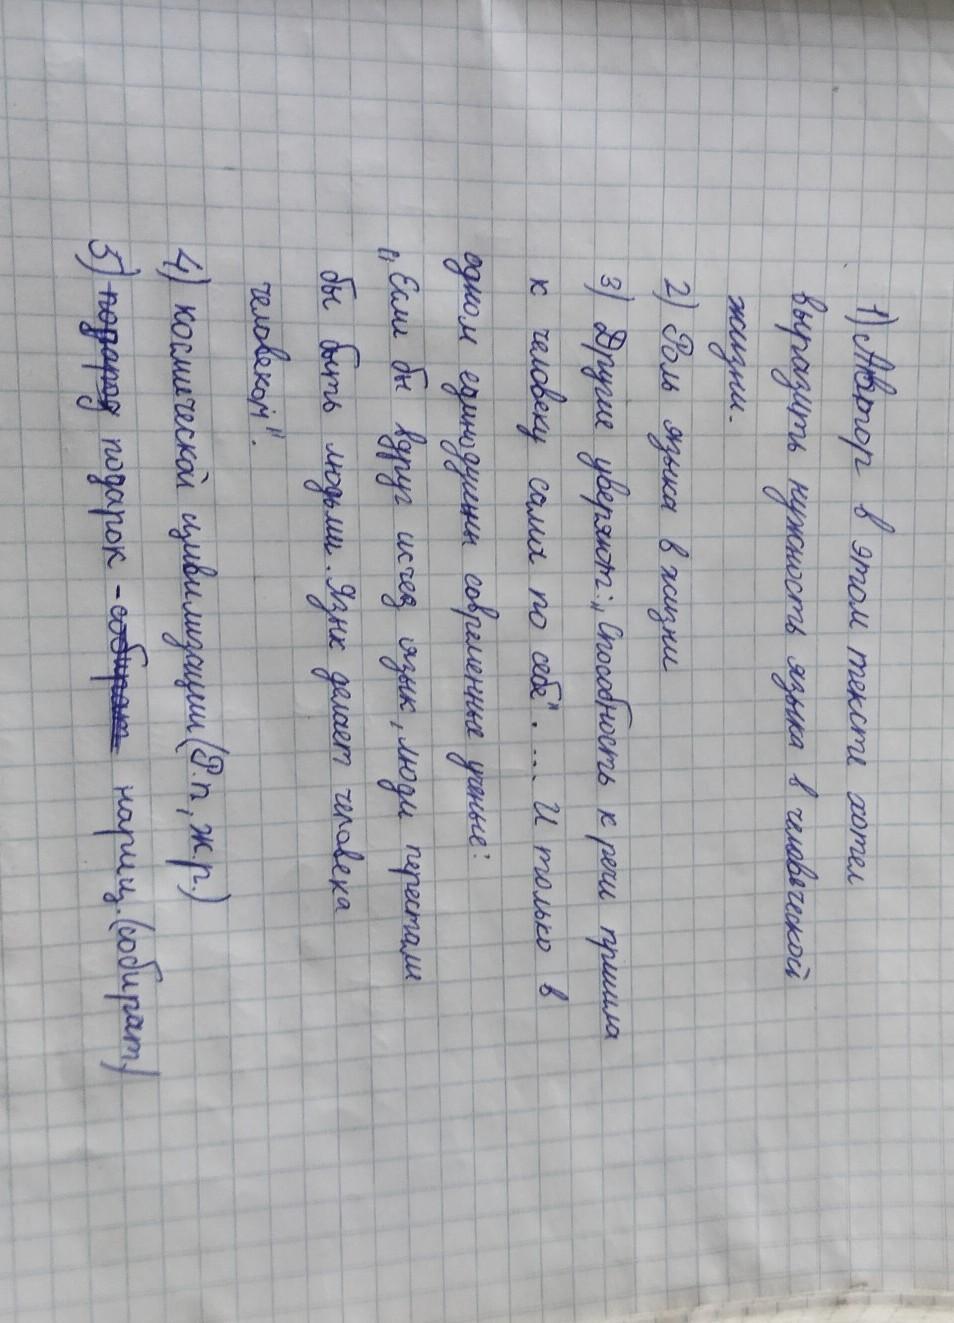 1) Автор в этом тексте хотел
выразить нужность языка в человеческой
жизни.
2) Роль языка в жизни
3) Другие уверяют: „Способность к речи пришла
к человеку сама по себе". ... И только в
одном единодушны современные ученые:
„Если бы вдруг исчез язык, люди перестали
бы быть людьми. Язык делает человека
человеком".
4) космической цивилизации (Р.п, ж.р.)
5) подарок - нариц. (собират.)